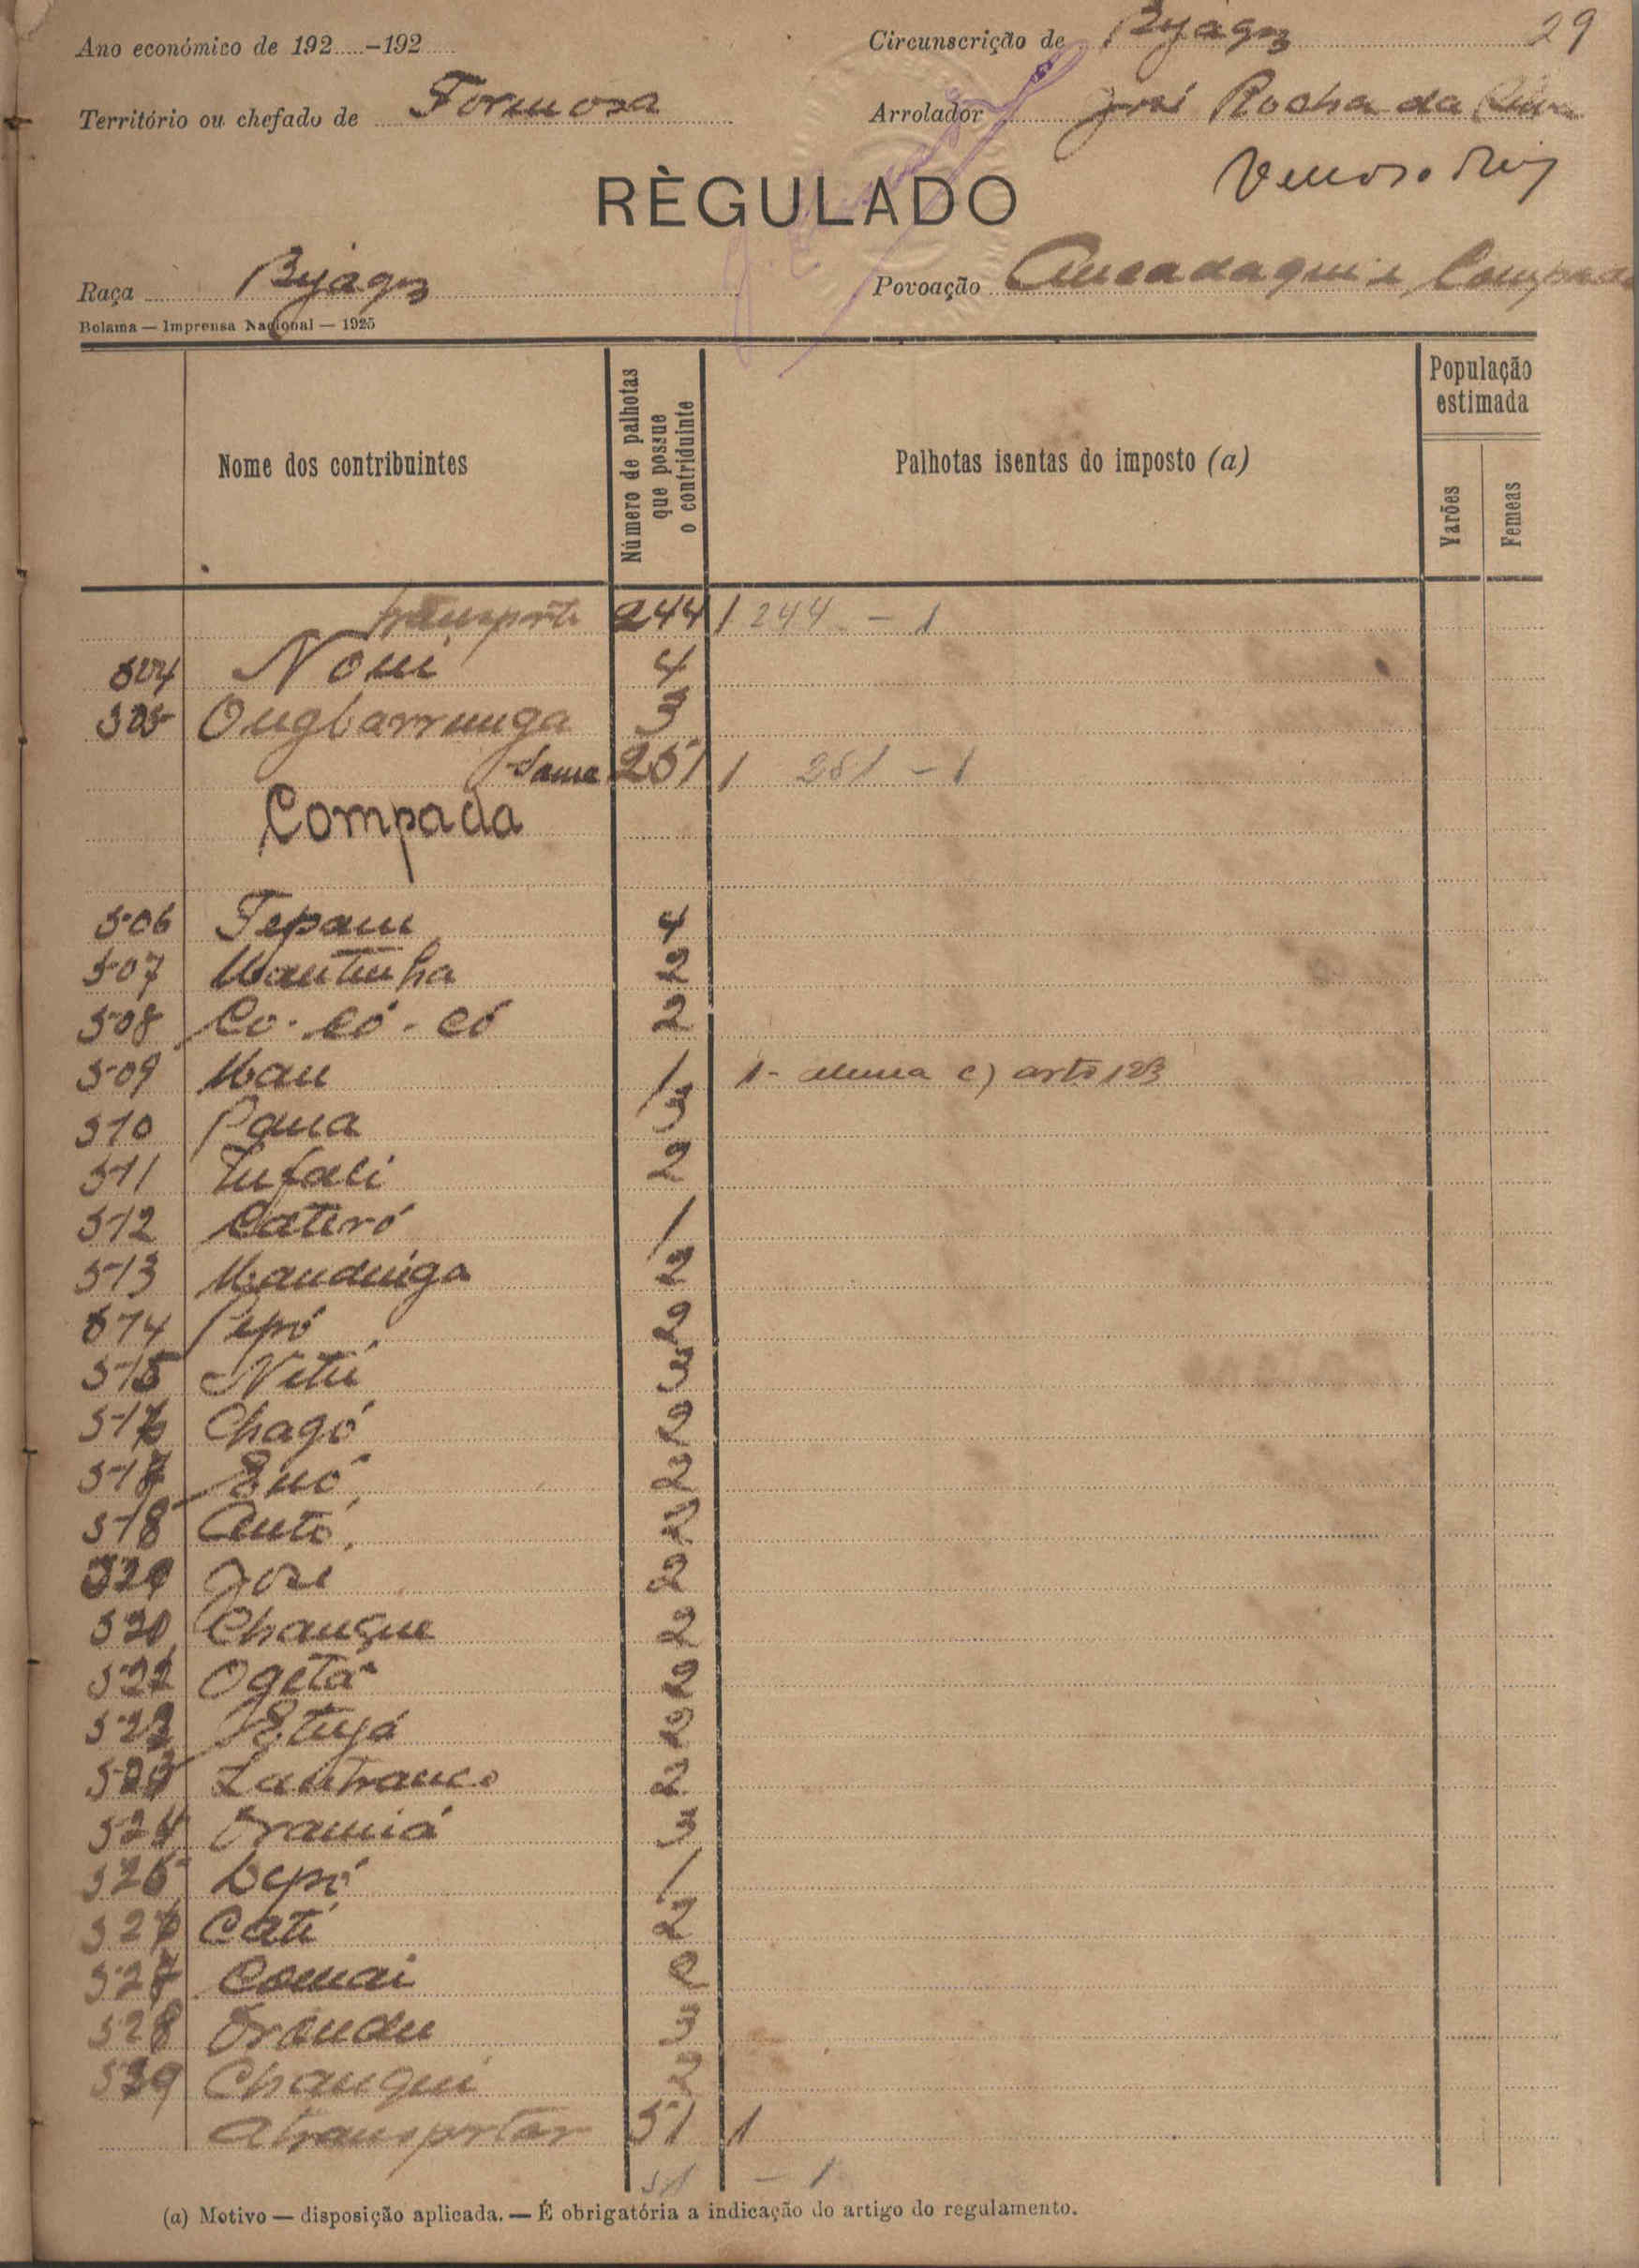 Ano económico de 192.....-192..... Circunscrição de Byágoz 29
Território ou chefado de Formosa Arrolador José Rocha da Silva
RÈGULADO
Raça Byágoz Povoação Ancadaqui e Compada
Bolama — Imprensa Nacional — 1925
Nome dos contribuintes
Número de palhotas que possue o contriduinte
Palhotas isentas do imposto (a)
População estimada
Varões
Femeas
transporte 244 1 244 - 1
504 Noui 4
505 Ougbarrunga 3
Soma 251 1 251 - 1
Compada
506 Tepam 4
507 Mantinha 2
508 Co-có-có 2
509 Man 1 1- alinea c) artº 123
510 Pana 3
511 Tufali 2
512 Cateró 1
513 Mandinga 2
514 Pepó 2
515 Nitú 3
516 Chagó 2
517 Enó 2
518 Antó 2
519 José 2
520 Chanque 2
521 Ogetá 2
522 Etuyá 2
523 Lantranco 2
524 Oramiá 3
525 Depó 1
526 Cati 2
527 Comai 2
528 Orandu 3
529 Chanqui 2
A transportar 51 1
51 - 1
(a) Motivo — disposição aplicada. — É obrigatória a indicação do artigo do regulamento.